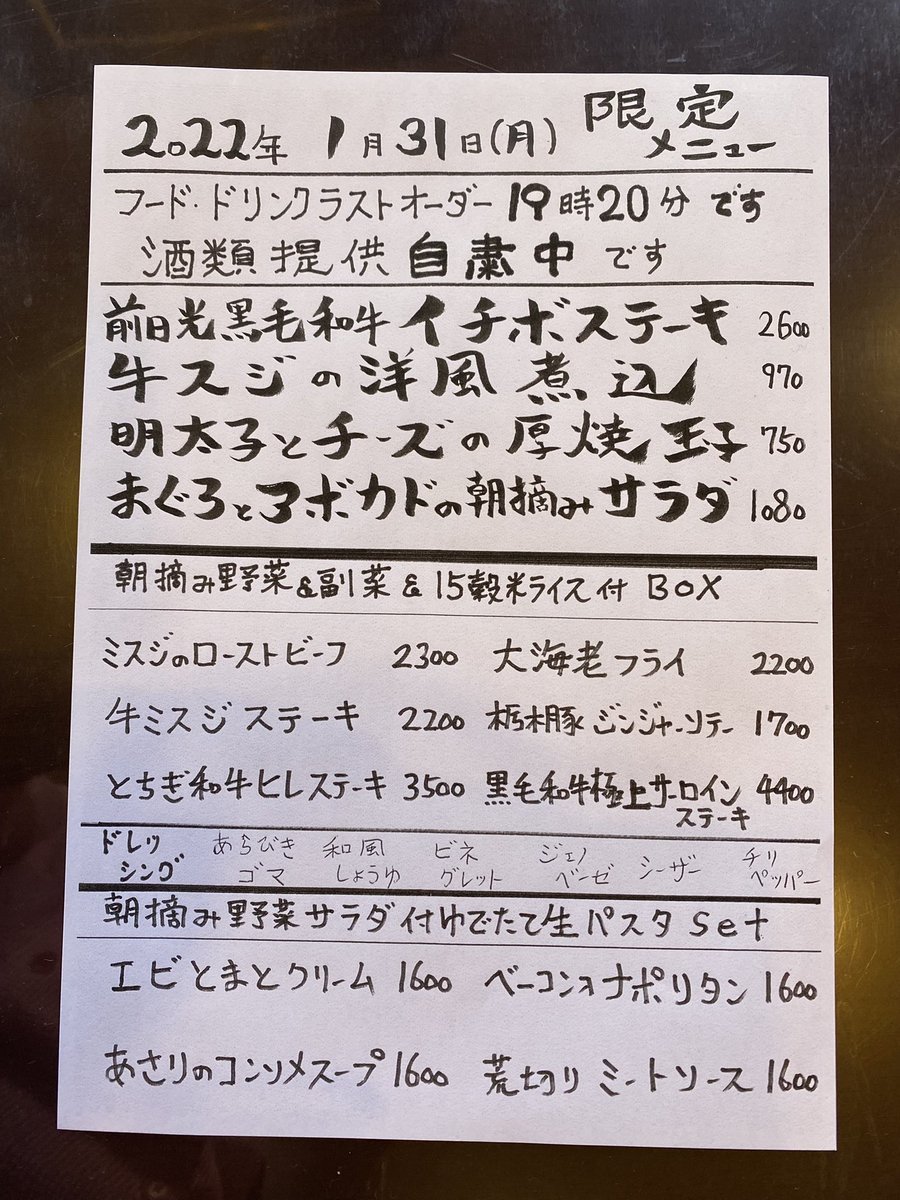 2022年 1月31日(月) 限定メニュー
フード・ドリンクラストオーダー 19時20分です
酒類提供自粛中です
前日光黒毛和牛イチボステーキ 2600
牛スジの洋風煮込 970
明太子とチーズの厚焼玉子 750
まぐろとアボカドの朝摘みサラダ 1080
朝摘み野菜&副菜&15穀米ライス付 BOX
ミスジのローストビーフ 2300 大海老フライ 2200
牛ミスジステーキ 2200 栃木豚ジンジャーソテー 1700
とちぎ和牛ヒレステーキ 3500 黒毛和牛極上サーロインステーキ 4400
ドレッシング あらびきゴマ 和風しょうゆ ビネグレット ジェノベーゼ シーザー チリペッパー
朝摘み野菜サラダ付ゆでたて生パスタ Set
エビとまとクリーム 1600 ベーコンナポリタン 1600
あさりのコンソメスープ 1600 荒切りミートソース 1600